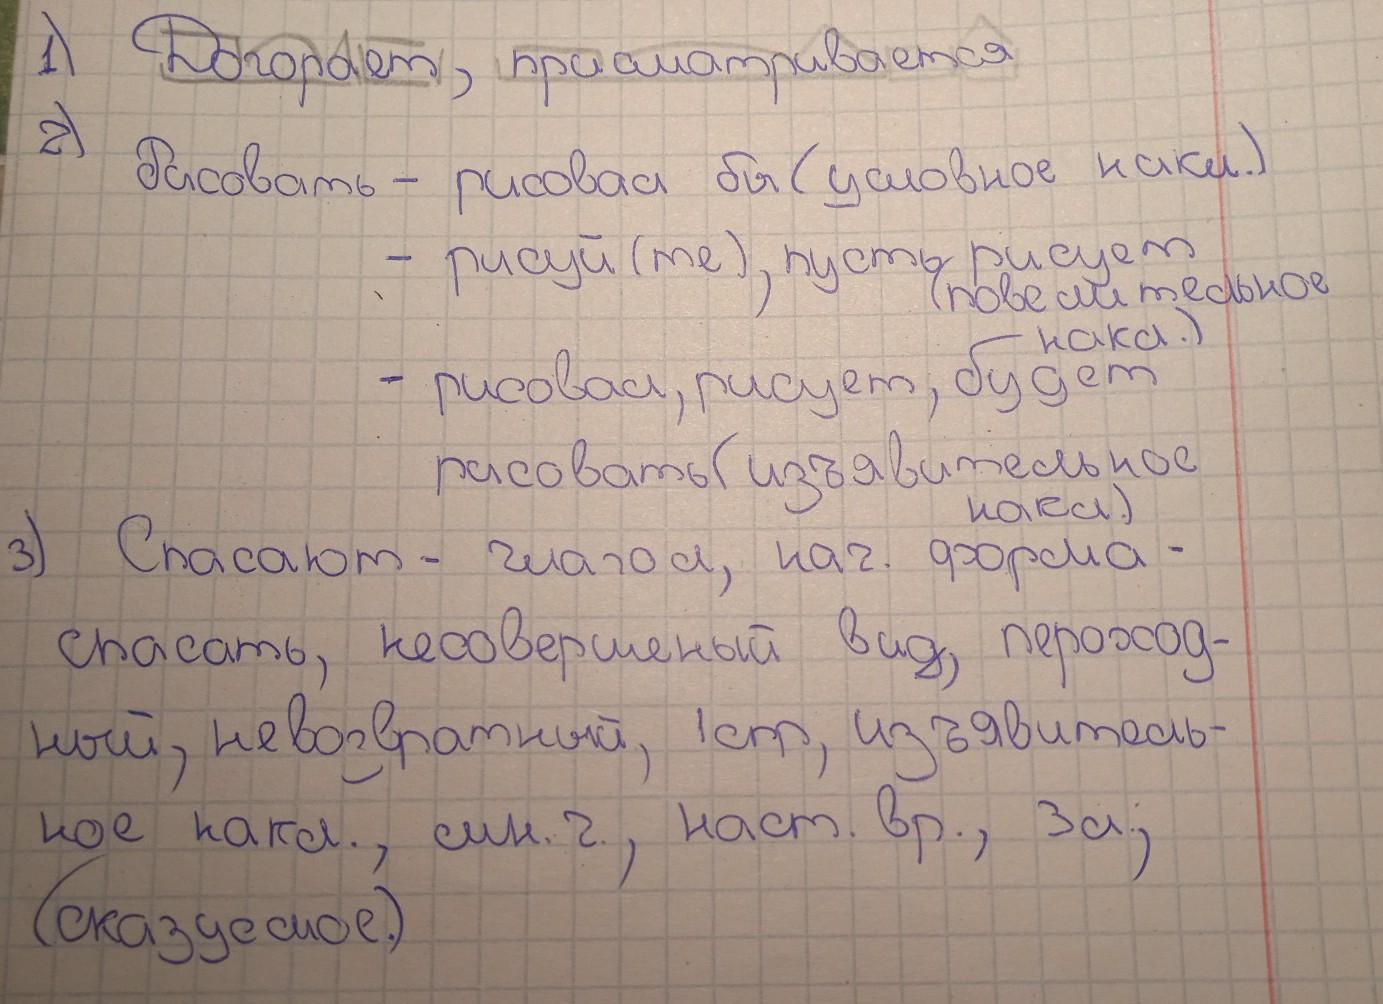 1) Догорает, присматривается
2)
Рисовать - рисовал бы (условное накл.)
- рисуй(те), пусть рисует
(повелительное
накл.)
- рисовал, рисует, будет
рисовать (изъявительное
накл.)
3) Спасают - глагол, нач. форма -
спасать, несовершеный вид, переход-
ный, невозвратный, 1 спр, изъявитель-
ное накл., мн. ч., наст. вр., 3 л.,
(сказуемое.)